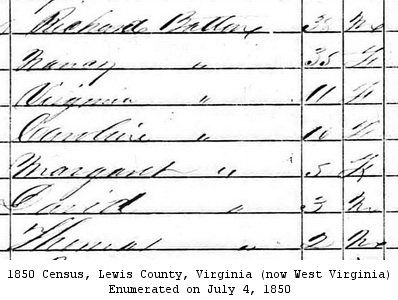 Richard Batten 3 M
Nancy " 35 F
Virginia " 11 F
Caroline " 10 F
Margaret " 5 F
David " 3 M
Thomas " 2 M
1850 Census, Lewis County, Virginia (now West Virginia)
Enumerated on July 4, 1850